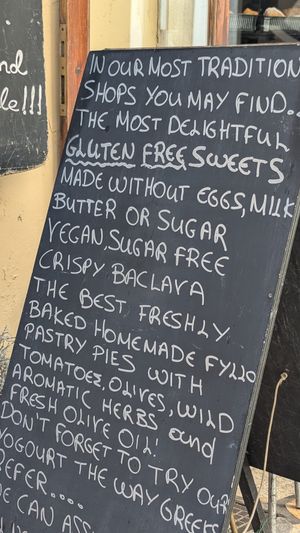 nd
le!!!
IN OUR MOST TRADITION
SHOPS YOU MAY FIND...
THE MOST DELIGHTFUL
GLUTEN FREE SWEETS
MADE WITHOUT EGGS, MILK
BUTTER OR SUGAR
VEGAN, SUGAR FREE
CRISPY BACLAVA
THE BEST, FRESHLY,
BAKED HOMEMADE FYLLO
PASTRY PIES WITH
TOMATOES, OLIVES, WILD
AROMATIC HERBS and
FRESH OLIVE OIL!
DON'T FORGET TO TRY OUR
YOGOURT THE WAY GREEKS
REFER....
E CAN ASS